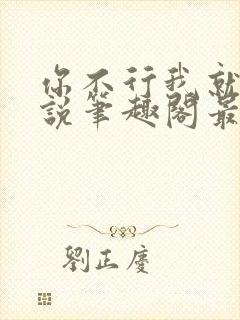 你不行我就
說筆趣閣最
劉正慶